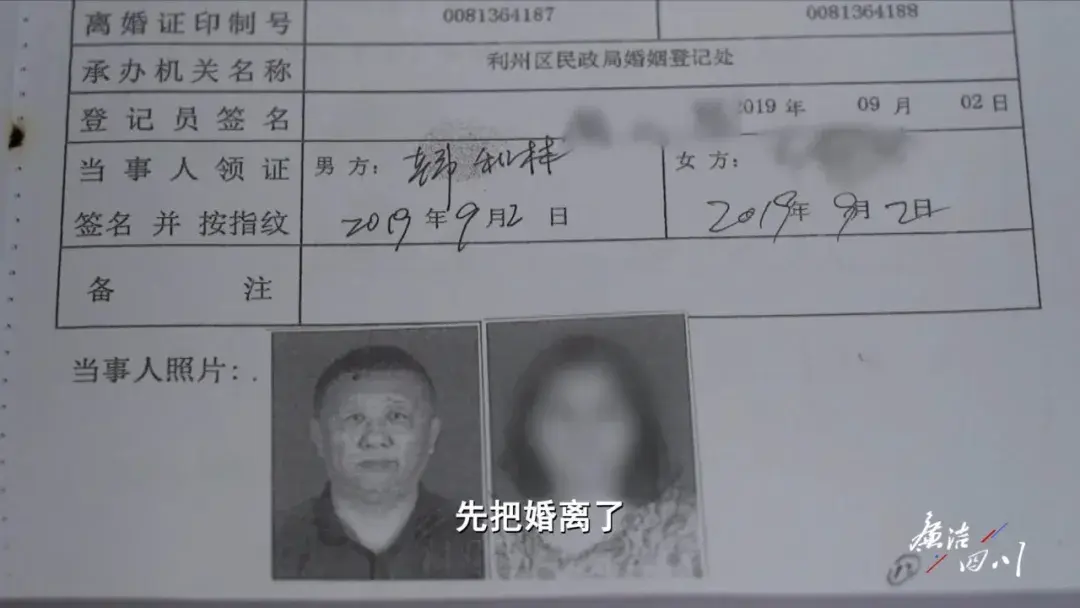 离婚证印制号 0081364187 0081364188
承办机关名称 利州区民政局婚姻登记处
登记员签名 2019 年 09 月 02 日
当事人领证 男方: 韩利林 女方:
签名 并 按指纹 2019 年 9 月 2 日 2019年 9月 2日
备 注
当事人照片:
先把婚离了
廉洁
四川
12